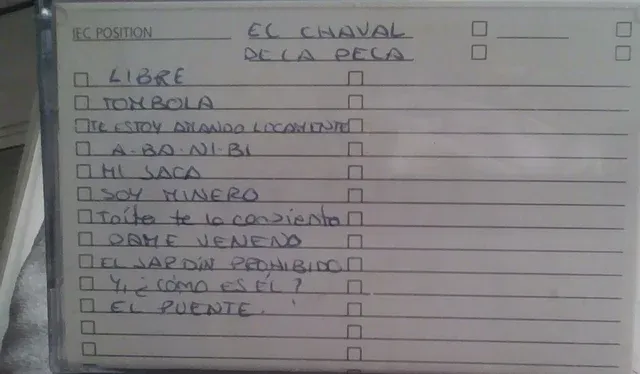 IEC POSITION EL CHAVAL
DE LA PECA
LIBRE
TOMBOLA
TE ESTOY AMANDO LOCAMENTE
A-BA-NI-BI
MI JACA
SOY MINERO
Toíto te lo consiento
DAME VENENO
EL JARDÍN PROHIBIDO
Y, ¿CÓMO ES ÉL?
EL PUENTE.